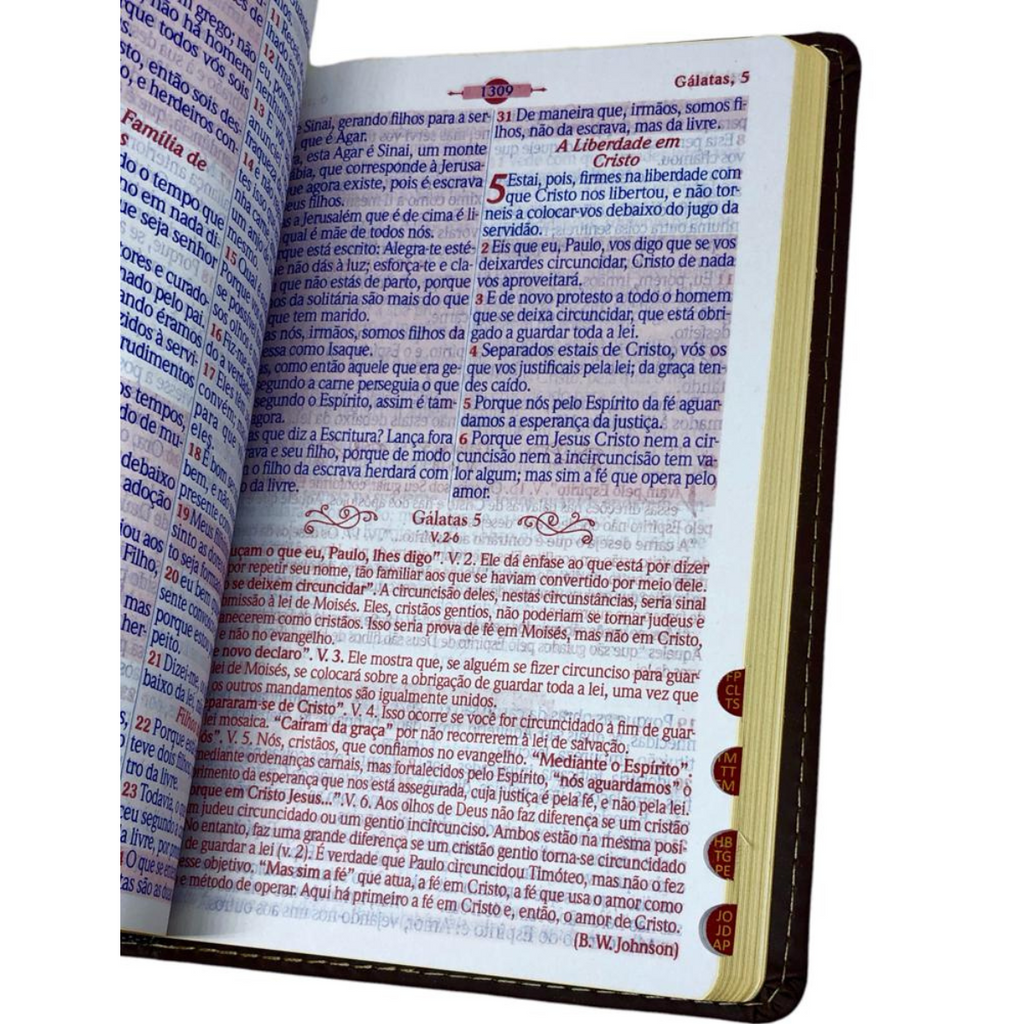 grego; não
não há homem
que todos vós sois
sto, então sois des-
o, e herdeiros con-
Família de
s
do o tempo que
o em nada di-
ue seja senhor
ores e curado-
nado pelo pai
ando éramos
zidos à servi-
rudimentos
os tempos,
do de mu-
debaixo
adoção
iou aos
Filho,
mas
her-
11 Recei
lhado e
12
eu,
irmão
13 E v
anuncie
fraqueza
14 e
tes isso
nha ca
um anjo
mesmo
15 Qual
Porque v
se possível
sos olhos
16 Fiz-me
do a verdade
17 Eles têm
convém
para que
eles.
18 É bom se
bem, e não
presente co
19 Meus fil
sinto as dores
to seja form
20 eu bem q
sente convos
porque estou
peito.
21 Dizei-me, o
baixo da lei, n
Filhos
22 Porque está
teve dois filhos,
tro da livre.
23 Todavia, o q
ceu segundo a c
a livre, por p
O que se en
tas são as duas
1309
Gálatas, 5
e Sinai, gerando filhos para a ser-
que é Agar.
, esta Agar é Sinai, um monte
bia, que corresponde à Jerusa-
ue agora existe, pois é escrava
us filhos.
as a Jerusalém que é de cima é li-
qual é mãe de todos nós.
rque está escrito: Alegra-te esté-
e não dás à luz; esforça-te e cla-
que não estás de parto, porque
os da solitária são mais do que
que tem marido.
as nós, irmãos, somos filhos da
essa como Isaque.
s, como então aquele que era ge-
segundo a carne perseguia o que
segundo o Espírito, assim é tam-
agora.
as que diz a Escritura? Lança fora
ava e seu filho, porque de modo
o filho da escrava herdará com
da livre.
31 De maneira que, irmãos, somos fi-
lhos, não da escrava, mas da livre.
A Liberdade em
Cristo
5 Estai, pois, firmes na liberdade com
que Cristo nos libertou, e não tor-
neis a colocar-vos debaixo do jugo da
servidão.
2 Eis que eu, Paulo, vos digo que se vos
deixardes circuncidar, Cristo de nada
vos aproveitará.
3 E de novo protesto a todo o homem
que se deixa circuncidar, que está obri-
gado a guardar toda a lei.
4 Separados estais de Cristo, vós os
que vos justificais pela lei; da graça ten-
des caído.
5 Porque nós pelo Espírito da fé aguar-
damos a esperança da justiça.
6 Porque em Jesus Cristo nem a cir-
cuncisão nem a incircuncisão tem va-
lor algum; mas sim a fé que opera pelo
amor.
Gálatas 5
V. 2-6
uçam o que eu, Paulo, lhes digo". V. 2. Ele dá ênfase ao que está por dizer
por repetir seu nome, tão familiar aos que se haviam convertido por meio dele.
o se deixem circuncidar". A circuncisão deles, nestas circunstâncias, seria sinal
omissão à lei de Moisés. Eles, cristãos gentios, não poderiam se tornar judeus e
anecerem como cristãos. Isso seria prova de fé em Moisés, mas não em Cristo,
e não no evangelho.
e novo declaro". V. 3. Ele mostra que, se alguém se fizer circunciso para guar-
lei de Moisés, se colocará sobre a obrigação de guardar toda a lei, uma vez que
os outros mandamentos são igualmente unidos.
pararam-se de Cristo". V. 4. Isso ocorre se você for circuncidado a fim de guar-
lei mosaica. "Caíram da graça" por não recorrerem à lei de salvação.
ós". V. 5. Nós, cristãos, que confiamos no evangelho. "Mediante o Espírito",
mediante ordenanças carnais, mas fortalecidos pelo Espírito, "nós aguardamos" o
primento da esperança que nos está assegurada, cuja justiça é pela fé, e não pela lei.
orque em Cristo Jesus...". V. 6. Aos olhos de Deus não faz diferença se um cristão
m judeu circuncidado ou um gentio incircunciso. Ambos estão na mesma posi-
No entanto, faz uma grande diferença se um cristão gentio torna-se circuncidado
de guardar a lei (v. 2). É verdade que Paulo circuncidou Timóteo, mas não o fez
esse objetivo. "Mas sim a fé" que atua, a fé em Cristo, a fé que usa o amor como
e método de operar. Aqui há primeiro a fé em Cristo e, então, o amor de Cristo.
(B. W. Johnson)
FP
CL
TS
TM
TT
FM
HB
TG
PE
JO
JD
AP